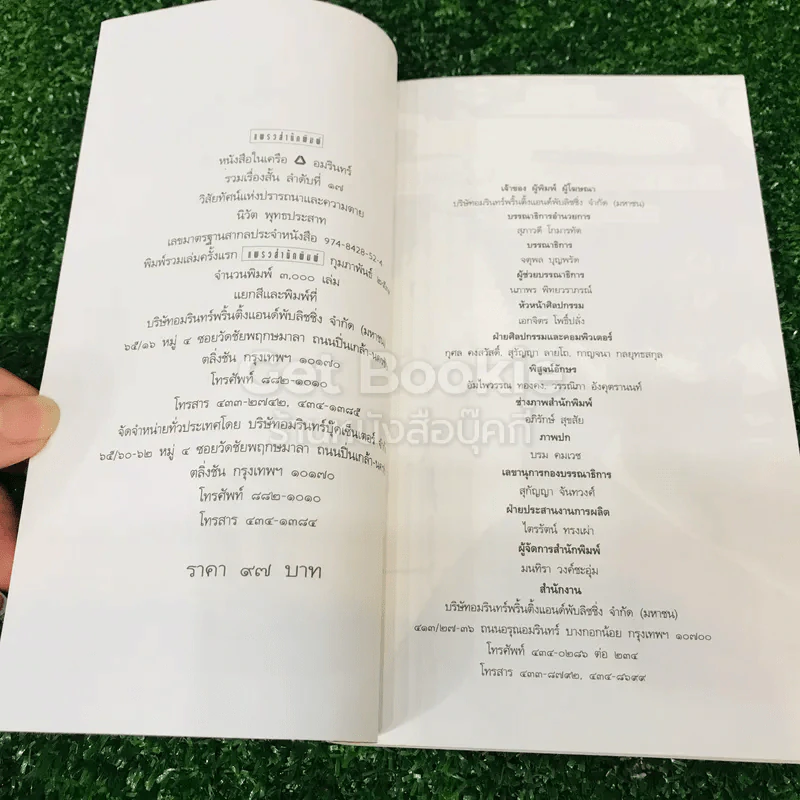 แพรวสำนักพิมพ์
หนังสือในเครือ อมรินทร์
รวมเรื่องสั้น ลำดับที่ ๑๗
วิสัยทัศน์แห่งปรารถนาและความตาย
นิวัต พุทธประสาท
เลขมาตรฐานสากลประจำหนังสือ 974-8428-52-4
พิมพ์รวมเล่มครั้งแรก แพรวสำนักพิมพ์ กุมภาพันธ์
จำนวนพิมพ์ ๓,๐๐๐ เล่ม
แยกสีและพิมพ์ที่
บริษัทอมรินทร์พริ้นติ้งแอนด์พับลิชชิ่ง จำกัด (มหาชน)
๖๕/๑๖ หมู่ ๔ ซอยวัดชัยพฤกษมาลา ถนนปิ่นเกล้า-
ตลิ่งชัน กรุงเทพฯ ๑๐๑๗๐
โทรศัพท์ ๘๘๒-๑๐๑๐
โทรสาร ๔๓๓-๒๗๔๒, ๔๓๔-๑๓๘๕
จัดจำหน่ายทั่วประเทศโดย บริษัทอมรินทร์บุ๊คเซ็นเตอร์
๖๕/๖๐-๖๒ หมู่ ๔ ซอยวัดชัยพฤกษมาลา ถนนปิ่นเกล้า-
ตลิ่งชัน กรุงเทพฯ ๑๐๑๗๐
โทรศัพท์ ๘๘๒-๑๐๑๐
โทรสาร ๔๓๔-๑๓๘๔
ราคา ๙๗ บาท
เจ้าของ ผู้พิมพ์ ผู้โฆษณา
บริษัทอมรินทร์พริ้นติ้งแอนด์พับลิชชิ่ง จำกัด (มหาชน)
บรรณาธิการอำนวยการ
สุภาวดี โกมารทัต
บรรณาธิการ
จตุพล บุญพรัด
ผู้ช่วยบรรณาธิการ
นภาพร พิทยวราภรณ์
หัวหน้าศิลปกรรม
เอกจิตร โพธิ์ปลั่ง
ฝ่ายศิลปกรรมและคอมพิวเตอร์
กุศล คงสวัสดิ์, สุรัญญา ลายไถ, กาญจนา กลยุทธสกุล
พิสูจน์อักษร
อัมไพวรรณ ทองคง, วรรณิภา อังคุตรานนท์
ช่างภาพสำนักพิมพ์
อภิรักษ์ สุขสัย
ภาพปก
บรม คมเวช
เลขานุการกองบรรณาธิการ
สุกัญญา จันทวงศ์
ฝ่ายประสานงานการผลิต
ไตรรัตน์ ทรงเผ่า
ผู้จัดการสำนักพิมพ์
มนทิรา วงค์ชะอุ่ม
สำนักงาน
บริษัทอมรินทร์พริ้นติ้งแอนด์พับลิชชิ่ง จำกัด (มหาชน)
๔๑๓/๒๗-๓๖ ถนนอรุณอมรินทร์ บางกอกน้อย กรุงเทพฯ ๑๐๗๐๐
โทรศัพท์ ๔๓๔-๐๒๘๖ ต่อ ๒๓๔
โทรสาร ๔๓๓-๘๗๙๒, ๔๓๔-๘๖๙๙
Get Bookie
ร้านหนังสือบุ๊คกี้